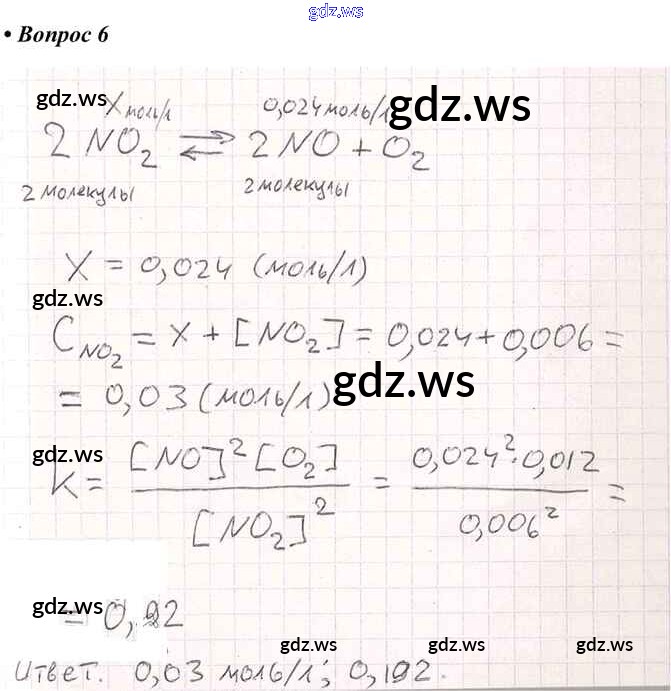 gdz.ws
• Вопрос 6
gdz.ws X моль/л 0,024 моль/л gdz.ws
2 NO₂ ⇄ 2 NO + O₂
2 молекулы 2 молекулы
X = 0,024 (моль/л)
gdz.ws
C NO₂ = X + [NO₂] = 0,024 + 0,006 =
= 0,03 (моль/л) gdz.ws
gdz.ws
K = [NO]² [O₂] / [NO₂]² = 0,024² · 0,012 / 0,006² =
gdz.ws
= 0,
gdz.ws gdz.ws gdz.ws
Ответ. 0,03 моль/л;